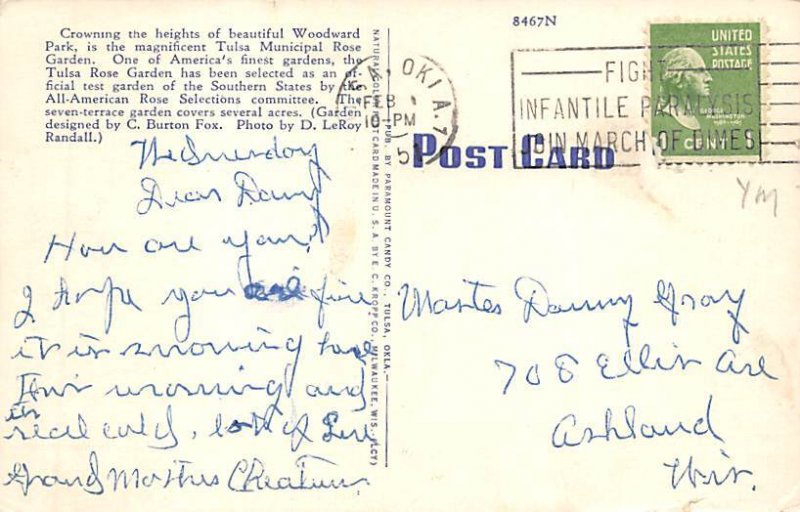 Crowning the heights of beautiful Woodward
Park, is the magnificent Tulsa Municipal Rose
Garden. One of America's finest gardens, the
Tulsa Rose Garden has been selected as an of-
ficial test garden of the Southern States by the
All-American Rose Selections committee. The
seven-terrace garden covers several acres. (Garden
designed by C. Burton Fox. Photo by D. LeRoy
Randall.)
Wednesday
Dear Danny
How are you?
I hope you are fine
it is snowing here
this morning and
its
real cold, lots of Love
Grand Mother
PUB. BY PARAMOUNT CANDY CO., TULSA, OKLA.—
NATURAL COLOR POSTCARD MADE IN U. S. A. BY E. C. KROPP CO., MILWAUKEE, WIS. (LCY)
8467N
OKLA.
FEB
10-PM
51
POST CARD
FIGHT
INFANTILE PARALYSIS
JOIN MARCH OF DIMES
UNITED
STATES
POSTAGE
GEORGE
WASHINGTON
1 CENT
YM
Master Danny Gray
708 Ellis Ave
Ashland
Wis.